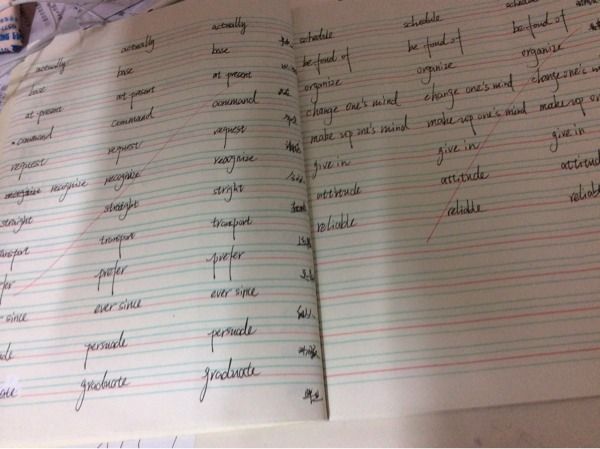 actually actually actually
base base base
at present at present at present
command command command
request request request
recognize recognize recognize
straight straight stright
transport transport
prefer prefer
since ever since ever since
persuade persuade
graduate graduate
schedule schedule schedule
be fond of be fond of be fond of
organize organize organize
change one's mind change one's mind change one's m
make up one's mind make up one's mind make up on
give in give in give in
attitude attitude attitud
reliable reliable reliabl